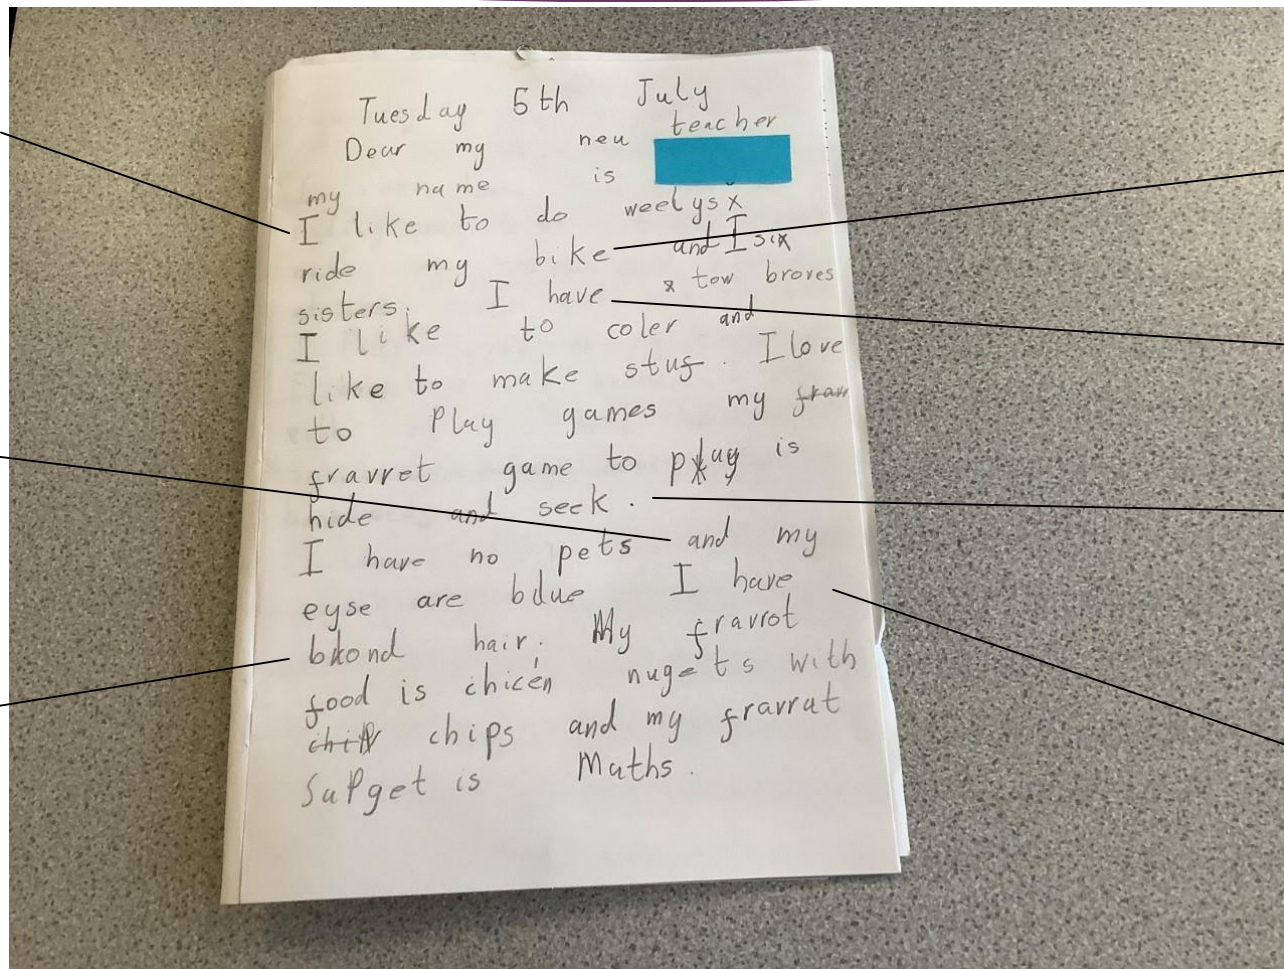 Tuesday 5th July
Dear my neu teacher
my name is
I like to do weelys x
ride my bike and I six
sisters. I have x tow broves
I like to coler and
like to make stuf. I love
to Play games my frav
fravret game to play is
hide and seek.
I have no pets and my
eyse are bdue I have
blond hair. My fravrot
food is chicen nugets with
chips and my fravrat
SuPget is Maths.